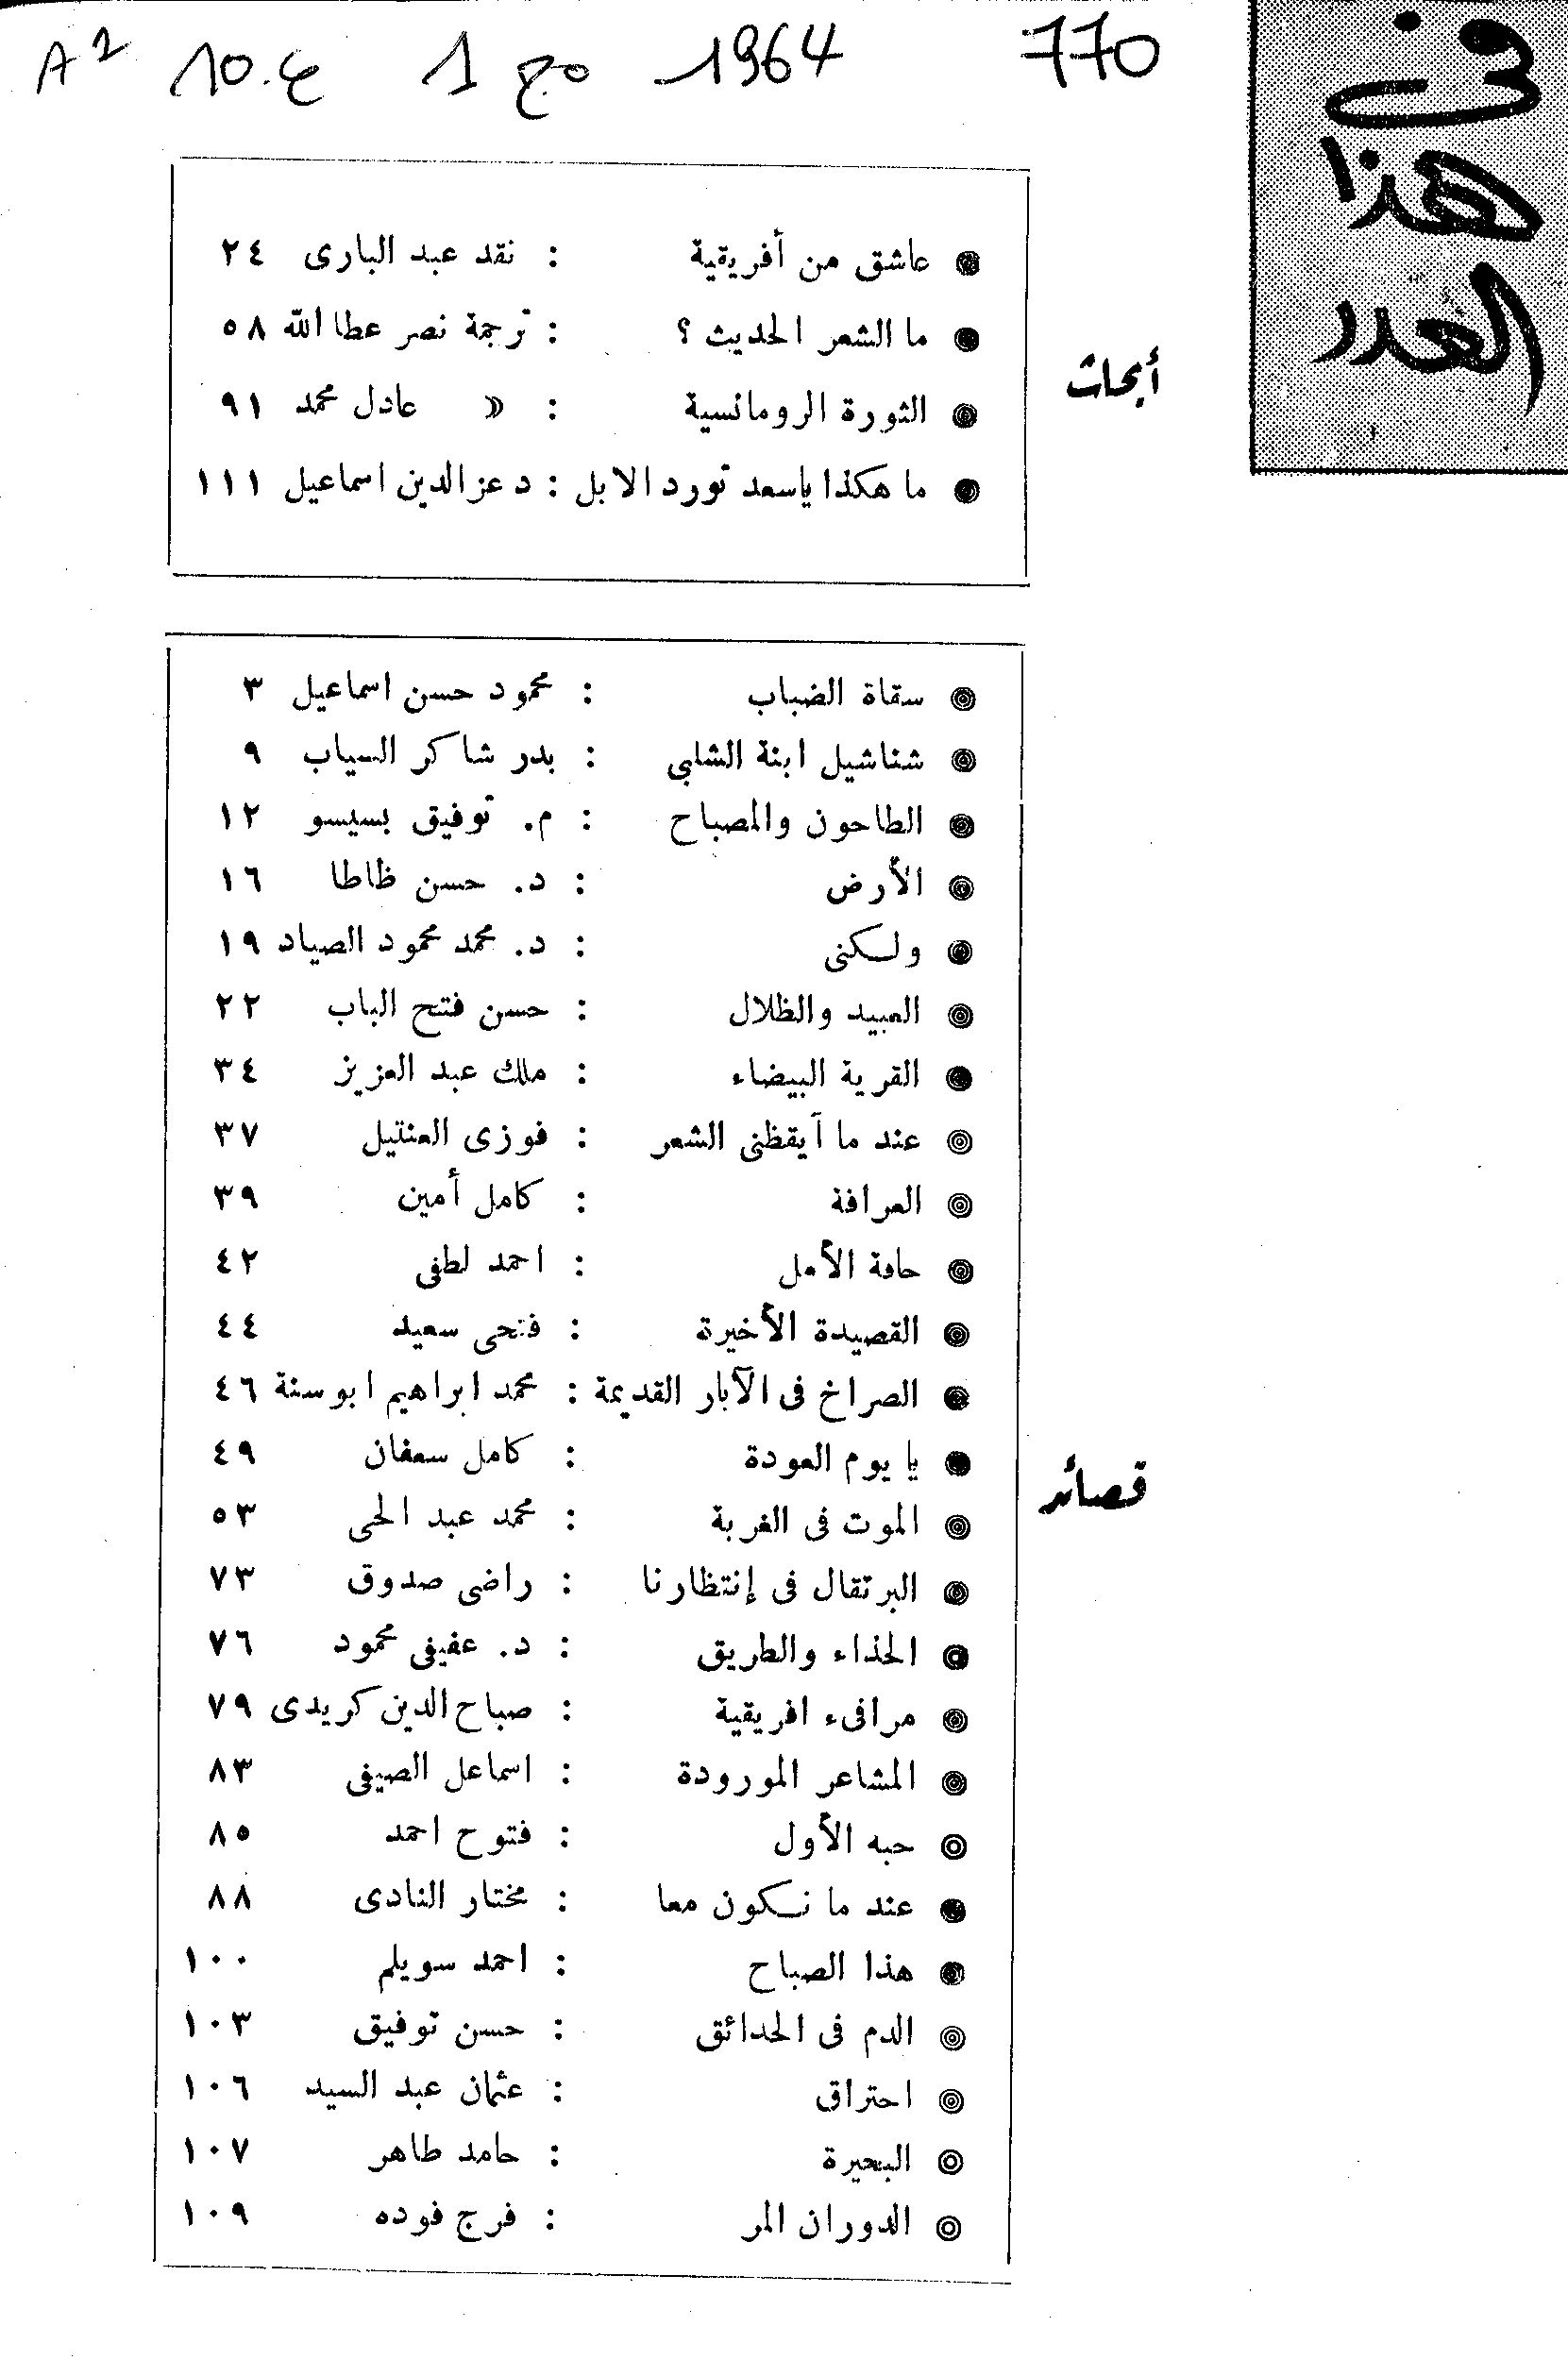 770 1964 مج 1 ع.10 A2
فى
هذا
العدد
أبحاث
عاشق من أفريقية : نقد عبد البارى ٢٤
ما الشعر الحديث ؟ : ترجمة نصر عطا الله ٥٨
الثورة الرومانسية : » عادل محمد ٩١
ما هكذا ياسعد تورد الابل : د عز الدين اسماعيل ١١١
قصائد
سقاة الضباب : محمود حسن اسماعيل ٣
شناشيل ابنة الشلبي : بدر شاكر السياب ٩
الطاحون والمصباح : م. توفيق بسيسو ١٢
الأرض : د. حسن ظاظا ١٦
ولكنى : د. محمد محمود الصياد ١٩
العبيد والظلال : حسن فتح الباب ٢٢
القرية البيضاء : ملك عبد العزيز ٣٤
عند ما أيقظنى الشعر : فوزى العنتيل ٣٧
العرافة : كامل أمين ٣٩
حافة الأمل : احمد لطفى ٤٢
القصيدة الأخيرة : فتحى سعيد ٤٤
الصراخ فى الآبار القديمة : محمد ابراهيم ابو سنة ٤٦
يا يوم العودة : كامل سعفان ٤٩
الموت فى الغربة : محمد عبد الحى ٥٣
البرتقال فى إنتظارنا : راضى صدوق ٧٣
الحذاء والطريق : د. عفيفى محمود ٧٦
مرافىء افريقية : صباح الدين كريدى ٧٩
المشاعر المورودة : اسماعل الصيفى ٨٣
حبه الأول : فتوح احمد ٨٥
عند ما نكون معا : مختار النادى ٨٨
هذا الصباح : احمد سويلم ١٠٠
الدم فى الحدائق : حسن توفيق ١٠٣
احتراق : عثمان عبد السيد ١٠٦
البحيرة : حامد طاهر ١٠٧
الدوران المر : فرج فوده ١٠٩